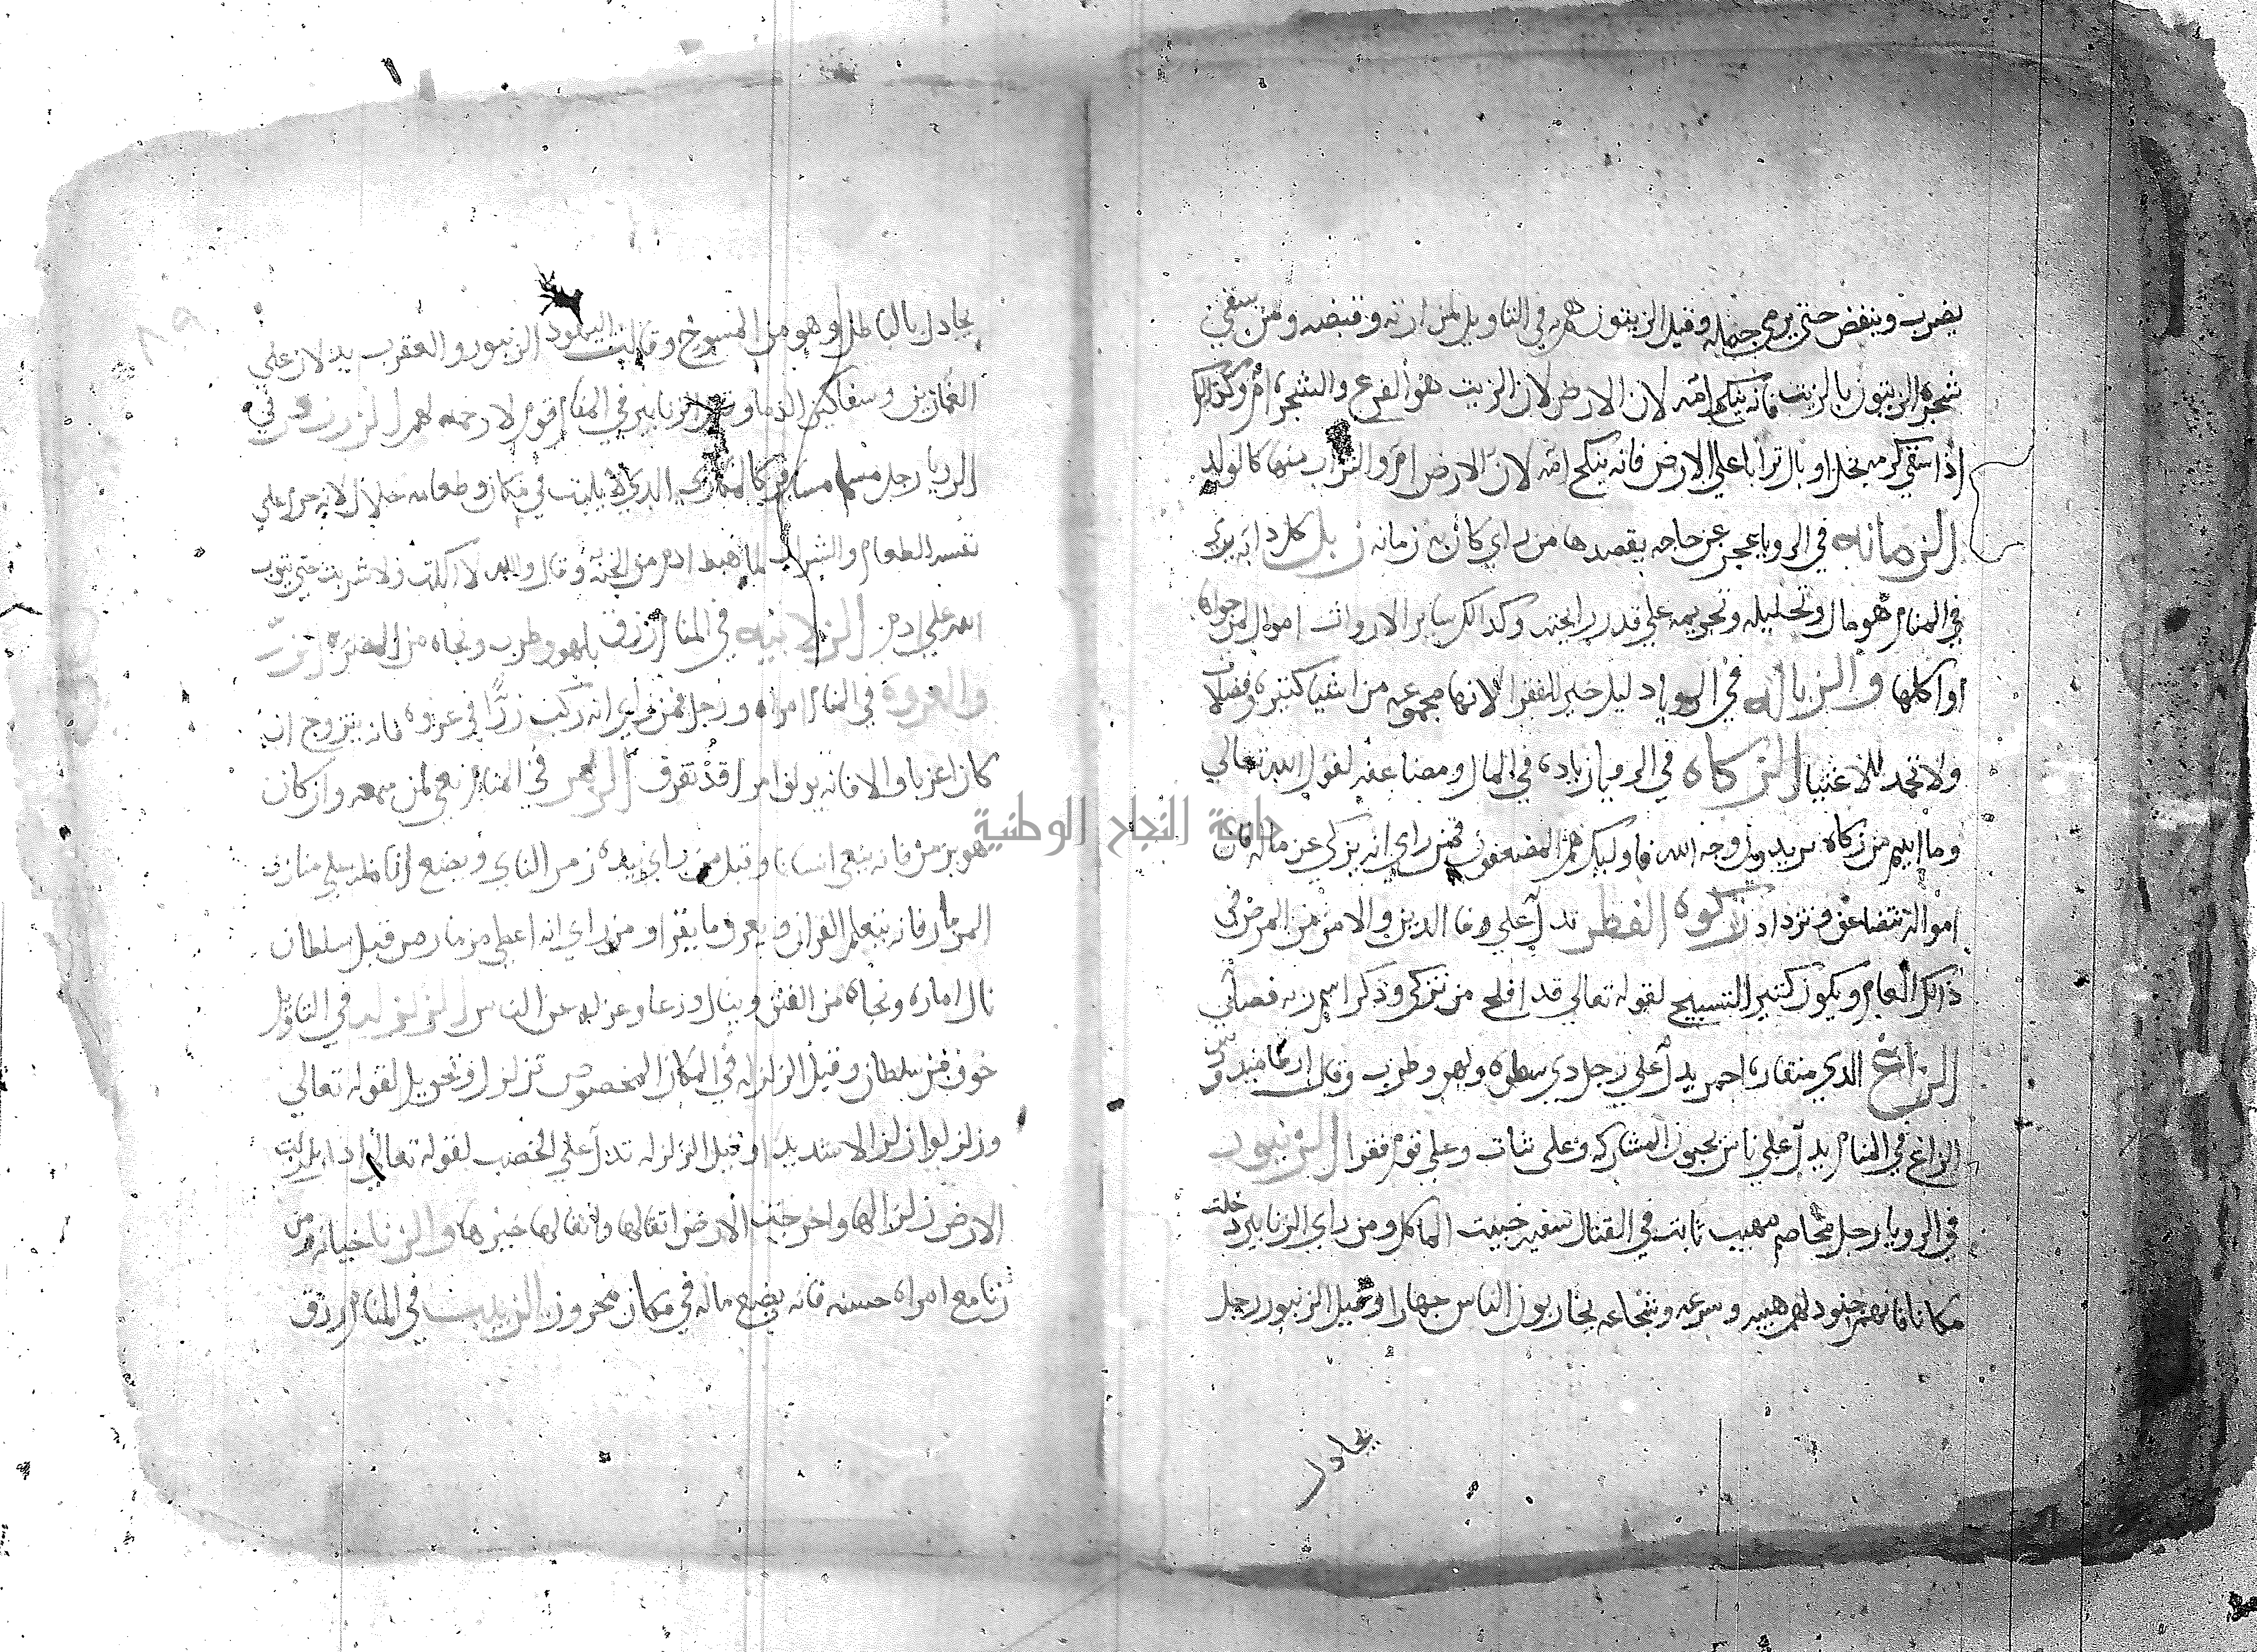 يضرب وينفض حتي يرمي حمله وقيل الزيتون هم في التاويل لمن ارثه وقبضه ومن سقي
شجره الزيتون بالزيت فانه ينكح امه لان الارض لان الزيت هو الفرع والشجره ام وكذالك
اذا سقي كرمه بخل او بال ترابا علي الارض فانه ينكح امه لان الارض ام والتراب منها كالولد
الزمانه في الرويا عجز عن حاجه يقصدها من راي كان به زمانه زبل كل دابه يري
في المنام هو مال وتحليله وتحريمه علي قدر رايحته وكذالك ساير الارواث اموال لمن حواه
او اكلها والزباله في الرويا دليل خير للفقرا لانها مجموعه من اشيا كثيره وفضلا
ولا تحمد للاغنيا الزكاه في الرويا زياده في المال ومضاعفه لقول الله تعالي
وما اتيتم من زكاه تريدون وجه الله فاوليك هم المضعفون فمن راي انه يزكي عن ماله فان
امواله تتضاعف وتزداد زكوه الفطر تدل علي وفا الدين والامن من المرض في
ذالك العام ويكون كثير التسبيح لقوله تعالي قد افلح من تزكي وذكر اسم ربه فصلي
الزاغ الذي منقاره احمر يدل علي رجل ذي سطوه ولهو وطرب وقال ارطاميدورس
الزاغ في المنام يدل علي ناس يحبون المشاركه وعلي قوم فقرا الزنبور
في الرويا رجل مخاصم مهيب ثابت في القتال سفيه خبيث الماكل ومن راي الزنابير دخلت
مكانا فانهم جنود لهم هيبه وسرعه وشجاعه يحاربون الناس جهارا وقيل الزنبور رجل
يجادل
يجادل بالباطل وهو من المسوخ وقالت اليهود الزنبور والعقرب يدلان علي
الغمازين وسفاكين الدما وقيل الزنابير في المنام قوم لا رحمه لهم الزرزور في
الرويا رجل مسلم مسافر كالمكاري الذي لا يلبث في مكان وطعامه حلال لانه حرم علي
نفسه الطعام والشراب لما هبط ادم من الجنه وقال والله لا اكلت ولا شربت حتي يتوب
الله علي ادم الزلابيه في المنام رزق بلهو وطرب ونجاه من الزر
والعروة في المنام امراه ورجل فمن راي انه ركب زرا في عروه فانه يتزوج ان
كان اعزبا والا فانه يولف امرا قد تفرق الزمر في المنام نعي لمن سمعه وان كان
هو يزمر فانه ينعي انسانا وقيل من راي بيده زمر الناي ويضع انامله علي منازف
المزمار فانه يتعلم القران ويعرف ما يقرا ومن راي انه اعطي مزمار من قبل سلطان
نال اماره ونجاه من الفتن وينال ورعا وعزله عن الناس الزلزله في التاويل
خوف من سلطان وقيل الزلزله في المكان المخصوص تزلزل وتحويل لقوله تعالي
وزلزلوا زلزالا شديدا وقيل الزلزله تدل علي الخصب لقوله تعالي اذا زلزلت
الارض زلزالها واخرجت الارض اثقالها واثقالها خيرها والزنا خيانه من
زنا مع امراه حسنه فانه يضع ماله في مكان محروز الزبيب في المنام رزق
جامعة النجاح الوطنية